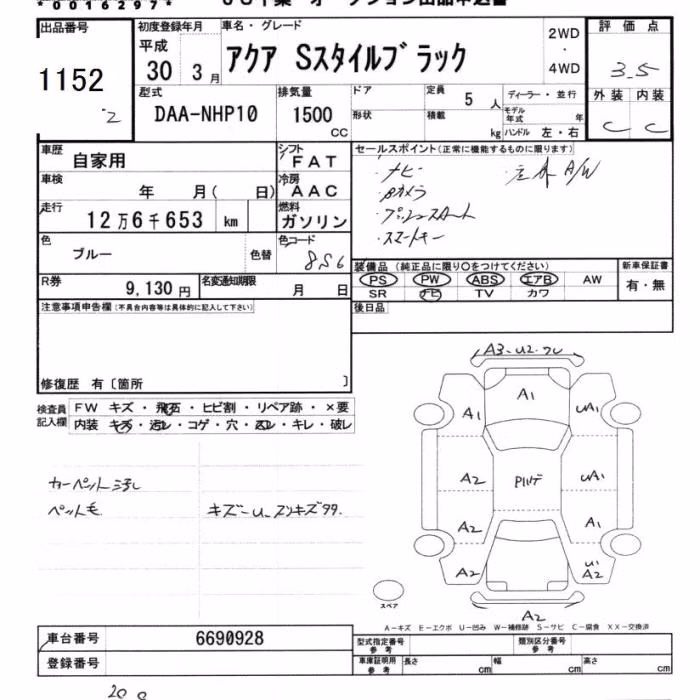 *00162977*
出品番号
1152
2
初度登録年月
平成
30 3月
車名・グレード
アクア Sスタイルブラック
2WD
・
4WD
評価点
3.5
外装 内装
C C
型式
DAA-NHP10
排気量
1500
CC
ドア
形状
定員
5人
積載
kg
ディーラー・並行
モデル年式 年
ハンドル 左・右
車歴
自家用
シフト
FAT
車検
年 月( 日)
冷房
AAC
走行
12万6千653 km
燃料
ガソリン
色
ブルー
色替
色コード
8S6
R券
9,130円
名変通知期限
月 日
セールスポイント(正常に機能するものに限ります)
・ナビ ・左外 A/W
・Bカメラ
・プッシュスタート
・スマートキー
装備品 (純正品に限り○をつけてください)
PS PW ABS エアB AW
SR ナビ TV カワ
新車保証書
有・無
後日品
注意事項申告欄(不具合内容等は具体的に記入して下さい)
修復歴 有〔箇所 〕
検査員記入欄
FW キズ・飛石・ヒビ割・リペア跡・×要
内装 キズ・汚レ・コゲ・穴・スレ・キレ・破レ
カーペット汚レ
ペット毛 キズ-U スリキズ
A3 U2 ワレ
A1
A1 UA1
A2 UA1
A2 A1
A2 U1 A2
A2
スペア
A-キズ E-エクボ U-凹み W-補修跡 S-サビ C-腐食 XX-交換済
車台番号
6690928
登録番号
型式指定番号
参考
類別区分番号
参考
車庫証明用
参考
長さ cm 幅 cm 高さ cm